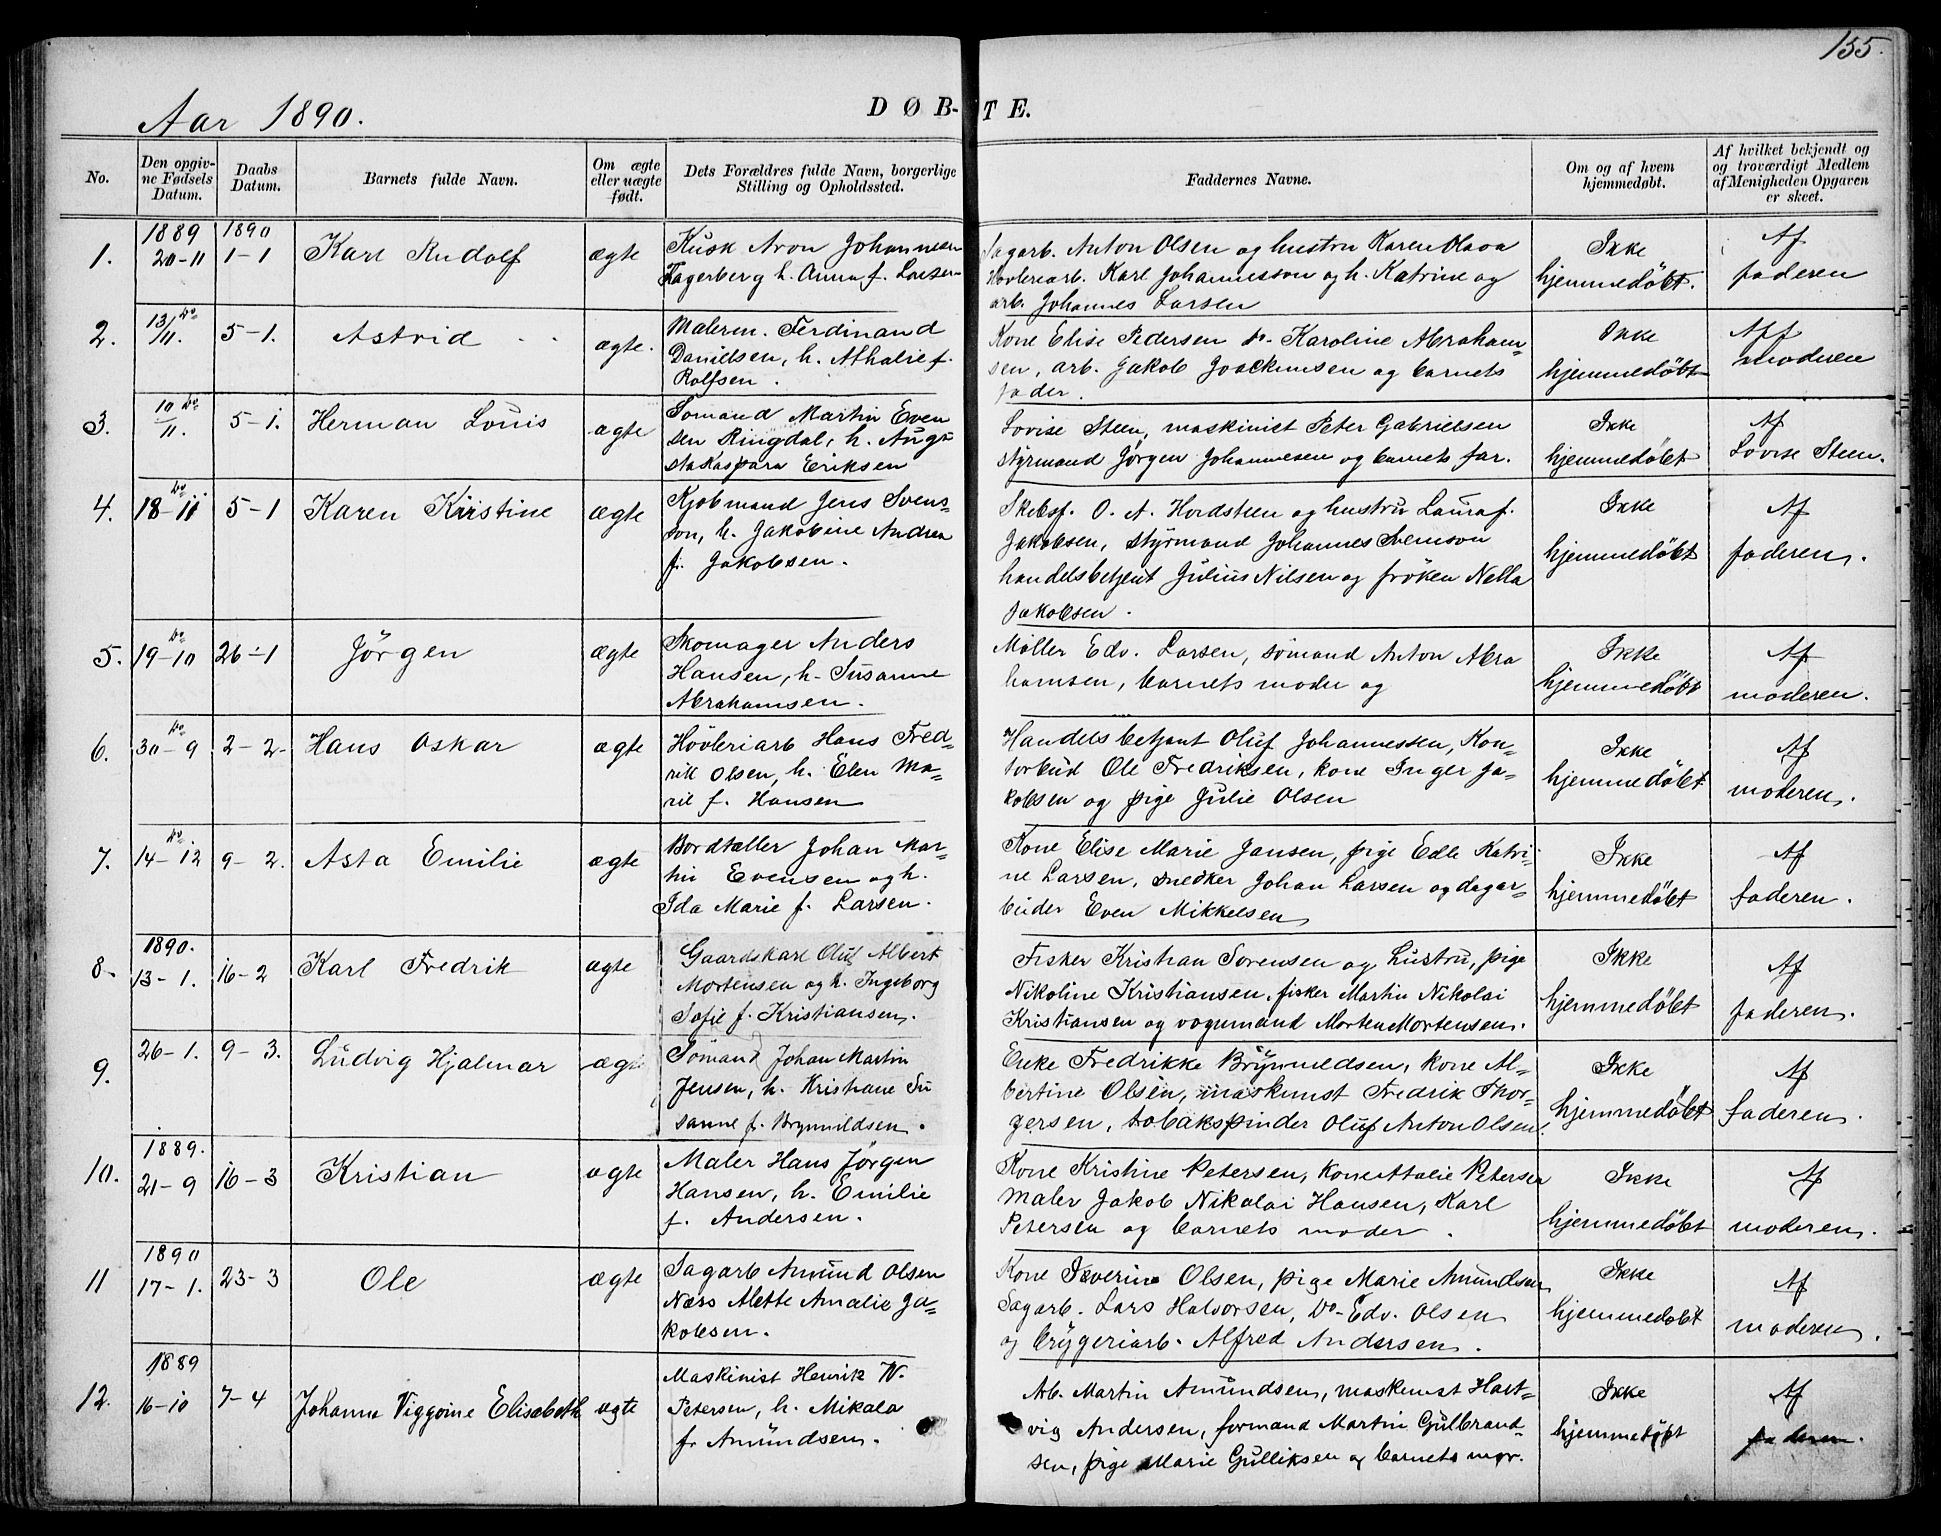 155.
Aar 1890.
DØB-TE.
No.
Den opgiv-
ne Fødsels
Datum.
Daabs
Datum.
Barnets fulde Navn.
Om ægte
eller uægte
født.
Dets Forældres fulde Navn, borgerlige
Stilling og Opholdssted.
Faddernes Navne.
Om og af hvem
hjemmedøbt.
Af hvilket bekjendt og
og troværdigt Medlem
af Menigheden Opgaven
er skeet.
1.
1889
20-11
1890
1-1
Karl Rudolf
ægte
Kusk Aron Johannesen
Fagerberg h. Anna f. Larsen
Sagarb. Anton Olsen og hustru Karen Olava
Høvleriarb. Karl Johannesson og h. Katrine og
arb. Johannes Larsen
Ikke
hjemmedøbt.
Af
faderen
2.
13/11. do
5-1.
Astrid
ægte.
Maleren. Ferdinand
Danielsen, h. Athalie f.
Rolfsen.
Kone Elise Pedersen do. Karoline Abraham-
sen, arb. Jakob Joackimsen og barnets
fader.
Ikke
hjemmedøbt
Af
moderen
3.
10/11. do
5-1.
Herman Louis
ægte
Sømand Martin Even
sen Ringdal, h. Augu
staKaspara Eriksen
Lovise Steen, maskinist Peter Gabrielsen
styrmand Jørgen Johannesen og barnets far.
Ikke
hjemmedøbt
Af
Lovise Steen.
4.
do
18-11
5-1
Karen Kristine
ægte
Kjøbmand Jens Svens-
son, h. Jakobine Andrea
f. Jakobsen.
Skibsf. O. A. Hordsteen og hustru Laura f.
Jakobsen, styrmand Johannes Svensson
handelsbetjent Julius Nilsen og frøken Nella
Jakobsen.
Ikke
hjemmedøbt
Af
faderen.
5.
do
19-10
26-1
Jørgen
ægte
Skomager Anders
Hansen, h. Susanne
Abrahamsen.
Møller Edv. Larsen, sømand Anton Abra
hamsen, barnets moder og
Ikke
hjemmedøbt
Af
moderen.
6.
do
30-9
2-2-
Hans Oskar
ægte
Høvleriarb Hans Fred-
rik Olsen, h. Elen Ma-
rie f. Hansen
Handelsbetjent Oluf Johannessen, Kon-
torbud Ole Fredriksen, kone Inger Ja-
kobsen og pige Julie Olsen
Ikke
hjemmedøbt
Af
moderen.
7.
do
14-12
9-2.
Asta Emilie
ægte
Bordtæller Johan Mar-
tin Evensen og h.
Ida Marie f. Larsen.
Kone Elise Marie Jansen, pige Edle Katri-
ne Larsen, snedker Johan Larsen og dagar-
beider Even Mikkelsen
Ikke
hjemmedøbt
Af
faderen.
8-
1890.
13-1.
16-2
Karl Fredrik
ægte
Gaardskarl Oluf Albert
Mortensen og h. Ingeborg
Sofie f. Kristiansen.
Fisker Kristian Sørensen og hustru, pige
Nikoline Kristiansen, fisker Martin Nikolai
Kristiansen og vognmand Morten Mortensen.
Ikke
hjemmedøbt
Af
faderen.
9.
26-1.
9-3.
Ludvig Hjalmar
ægte
Sømand Johan Martin
Jensen, h. Kristiane Su
sanne f. Brynnildsen.
Enke Fredrikke Brynnildsen, kone Al-
bertine Olsen, maskinist Fredrik Thor-
gersen, tobakspinder Oluf Anton Olsen.
Ikke
hjemmedøbt
Af
faderen.
10.
1889.
21-9
16-3
Kristian
ægte
Maler Hans Jørgen
Hansen, h. Emilie
f. Andersen.
Kone Kristine Petersen, kone Attalie Petersen
maler Jakob Nikolai Hansen, Karl
Petersen og barnets moder.
Ikke
hjemmedøbt
Af
moderen.
11
1890
17-1.
23-3
Ole
ægte
Sagarb Amund Olsen
Næss Alette Amalie Ja-
kobsen.
Kone Severine Olsen, pige Marie Amundsen
Sagarb. Lars Halvorsen, do- Edv. Olsen
og bryggeriarb. Alfred Andersen.
Ikke
hjemmedøbt
Af
moderen.
12.
1889
16-10
7-4
Johanne Viggoine Elisabeth
ægte
Maskinist Henrik W.
Petersen, h. Mikala
f. Amundsen.
Arb. Martin Amundsen, maskinist Hart-
vig Andersen, formand Martin Gulbrand-
sen, pige Marie Gulliksen og barnets mor.
Ikke
hjemmedøbt
Af
faderen.